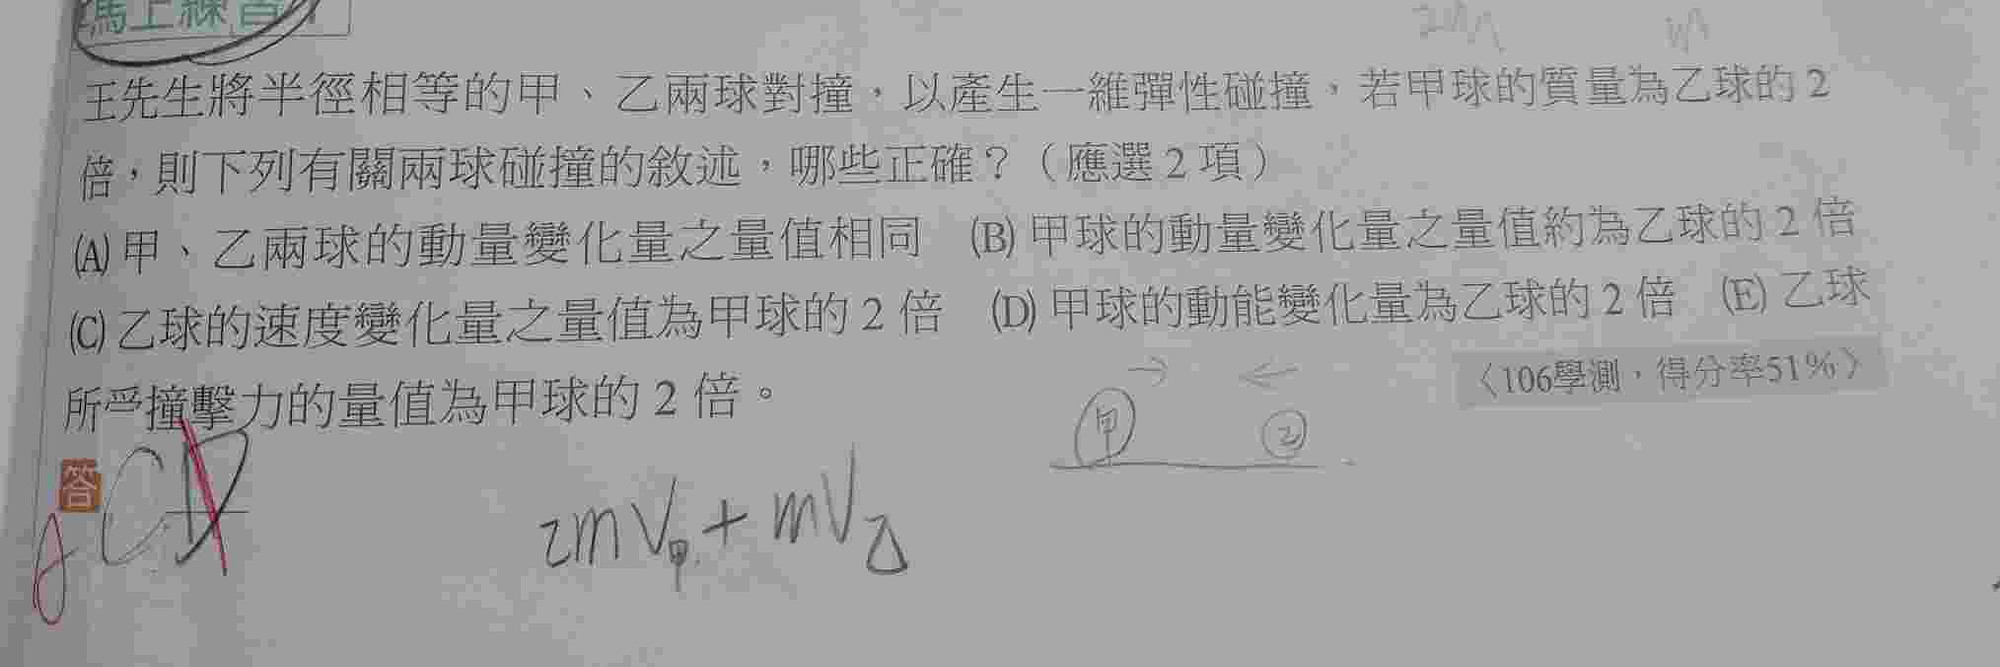 馬上練習!
2m m
王先生將半徑相等的甲、乙兩球對撞，以產生一維彈性碰撞，若甲球的質量為乙球的2
倍，則下列有關兩球碰撞的敘述，哪些正確？（應選2項）
(A)甲、乙兩球的動量變化量之量值相同 (B)甲球的動量變化量之量值約為乙球的2倍
(C)乙球的速度變化量之量值為甲球的2倍 (D)甲球的動能變化量為乙球的2倍 (E)乙球
所受撞擊力的量值為甲球的2倍。
〈106學測，得分率51%〉
→ ←
甲 乙
答 CD
2mV甲+mV乙